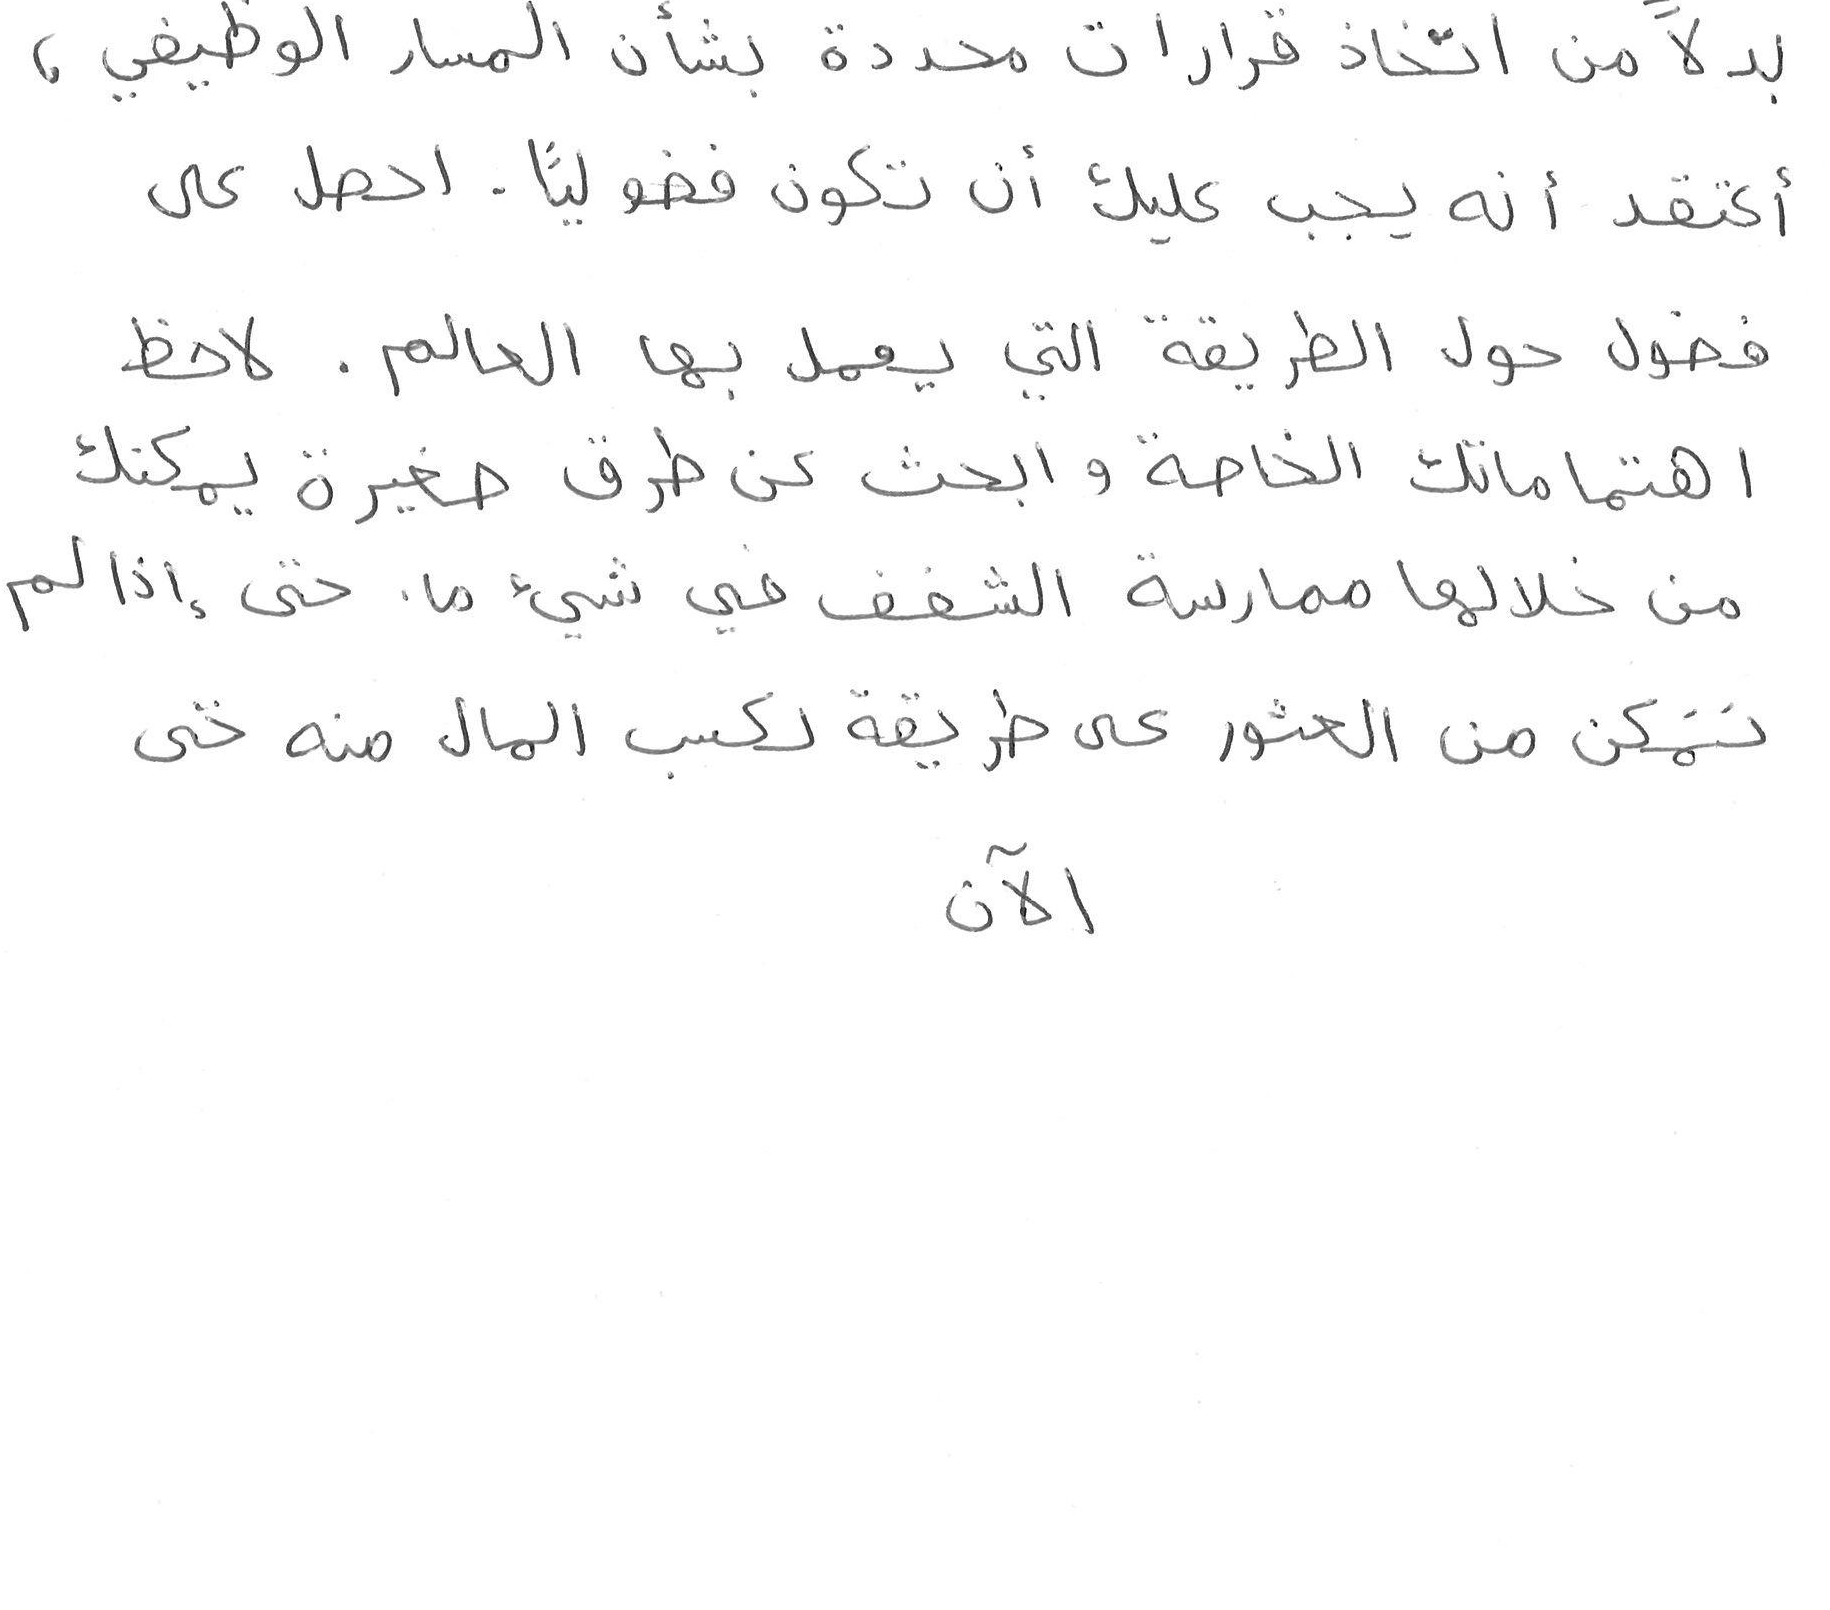 بدلاً من اتخاذ قرارات محددة بشأن المسار الوظيفي ،
أعتقد أنه يجب عليك أن تكون فضوليًا. احصل على
فضول حول الطريقة التي يعمل بها العالم. لاحظ
اهتماماتك الخاصة وابحث عن طرق صغيرة يمكنك
من خلالها ممارسة الشغف في شيء ما. حتى إذا لم
تتمكن من العثور على طريقة لكسب المال منه حتى
الآن